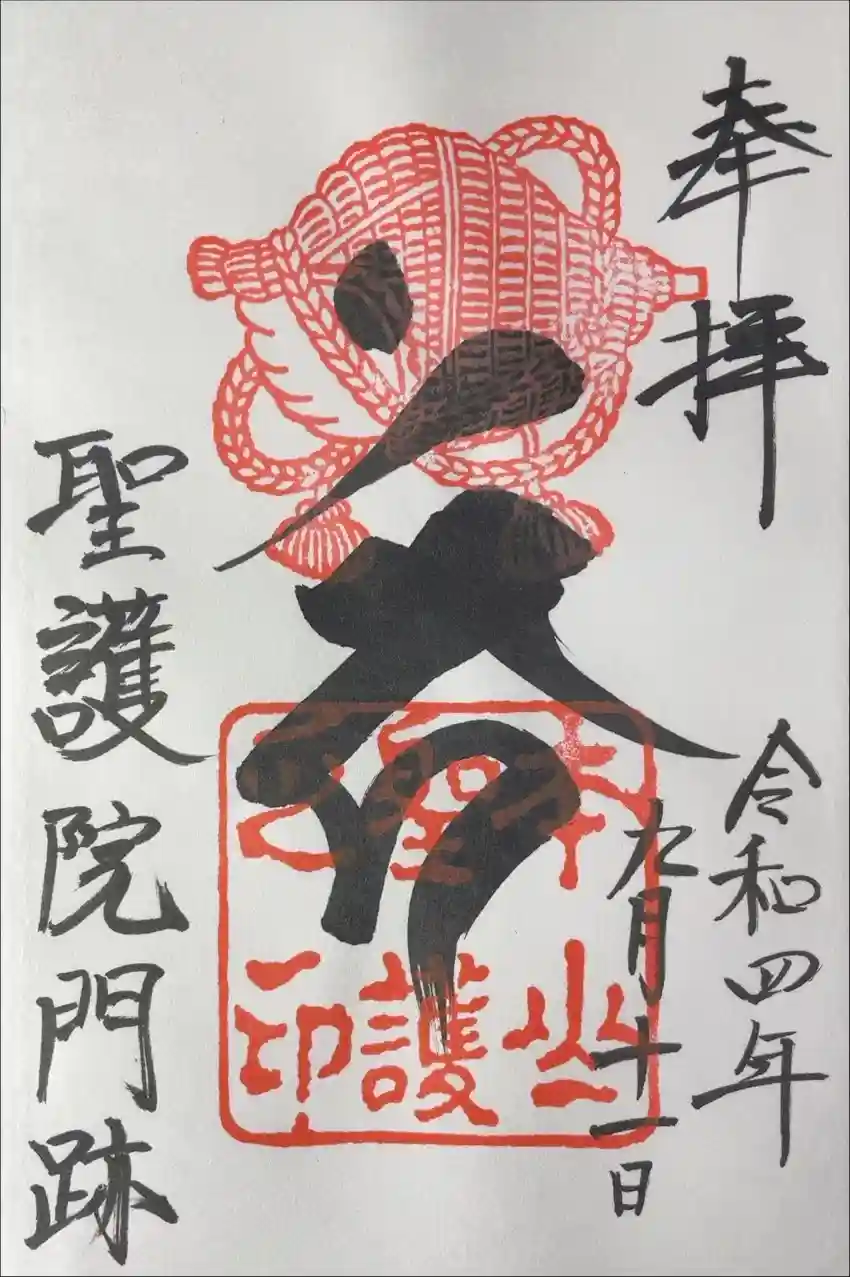 奉拝
令和四年
九月十一日
本山
聖護
印
聖護院門跡